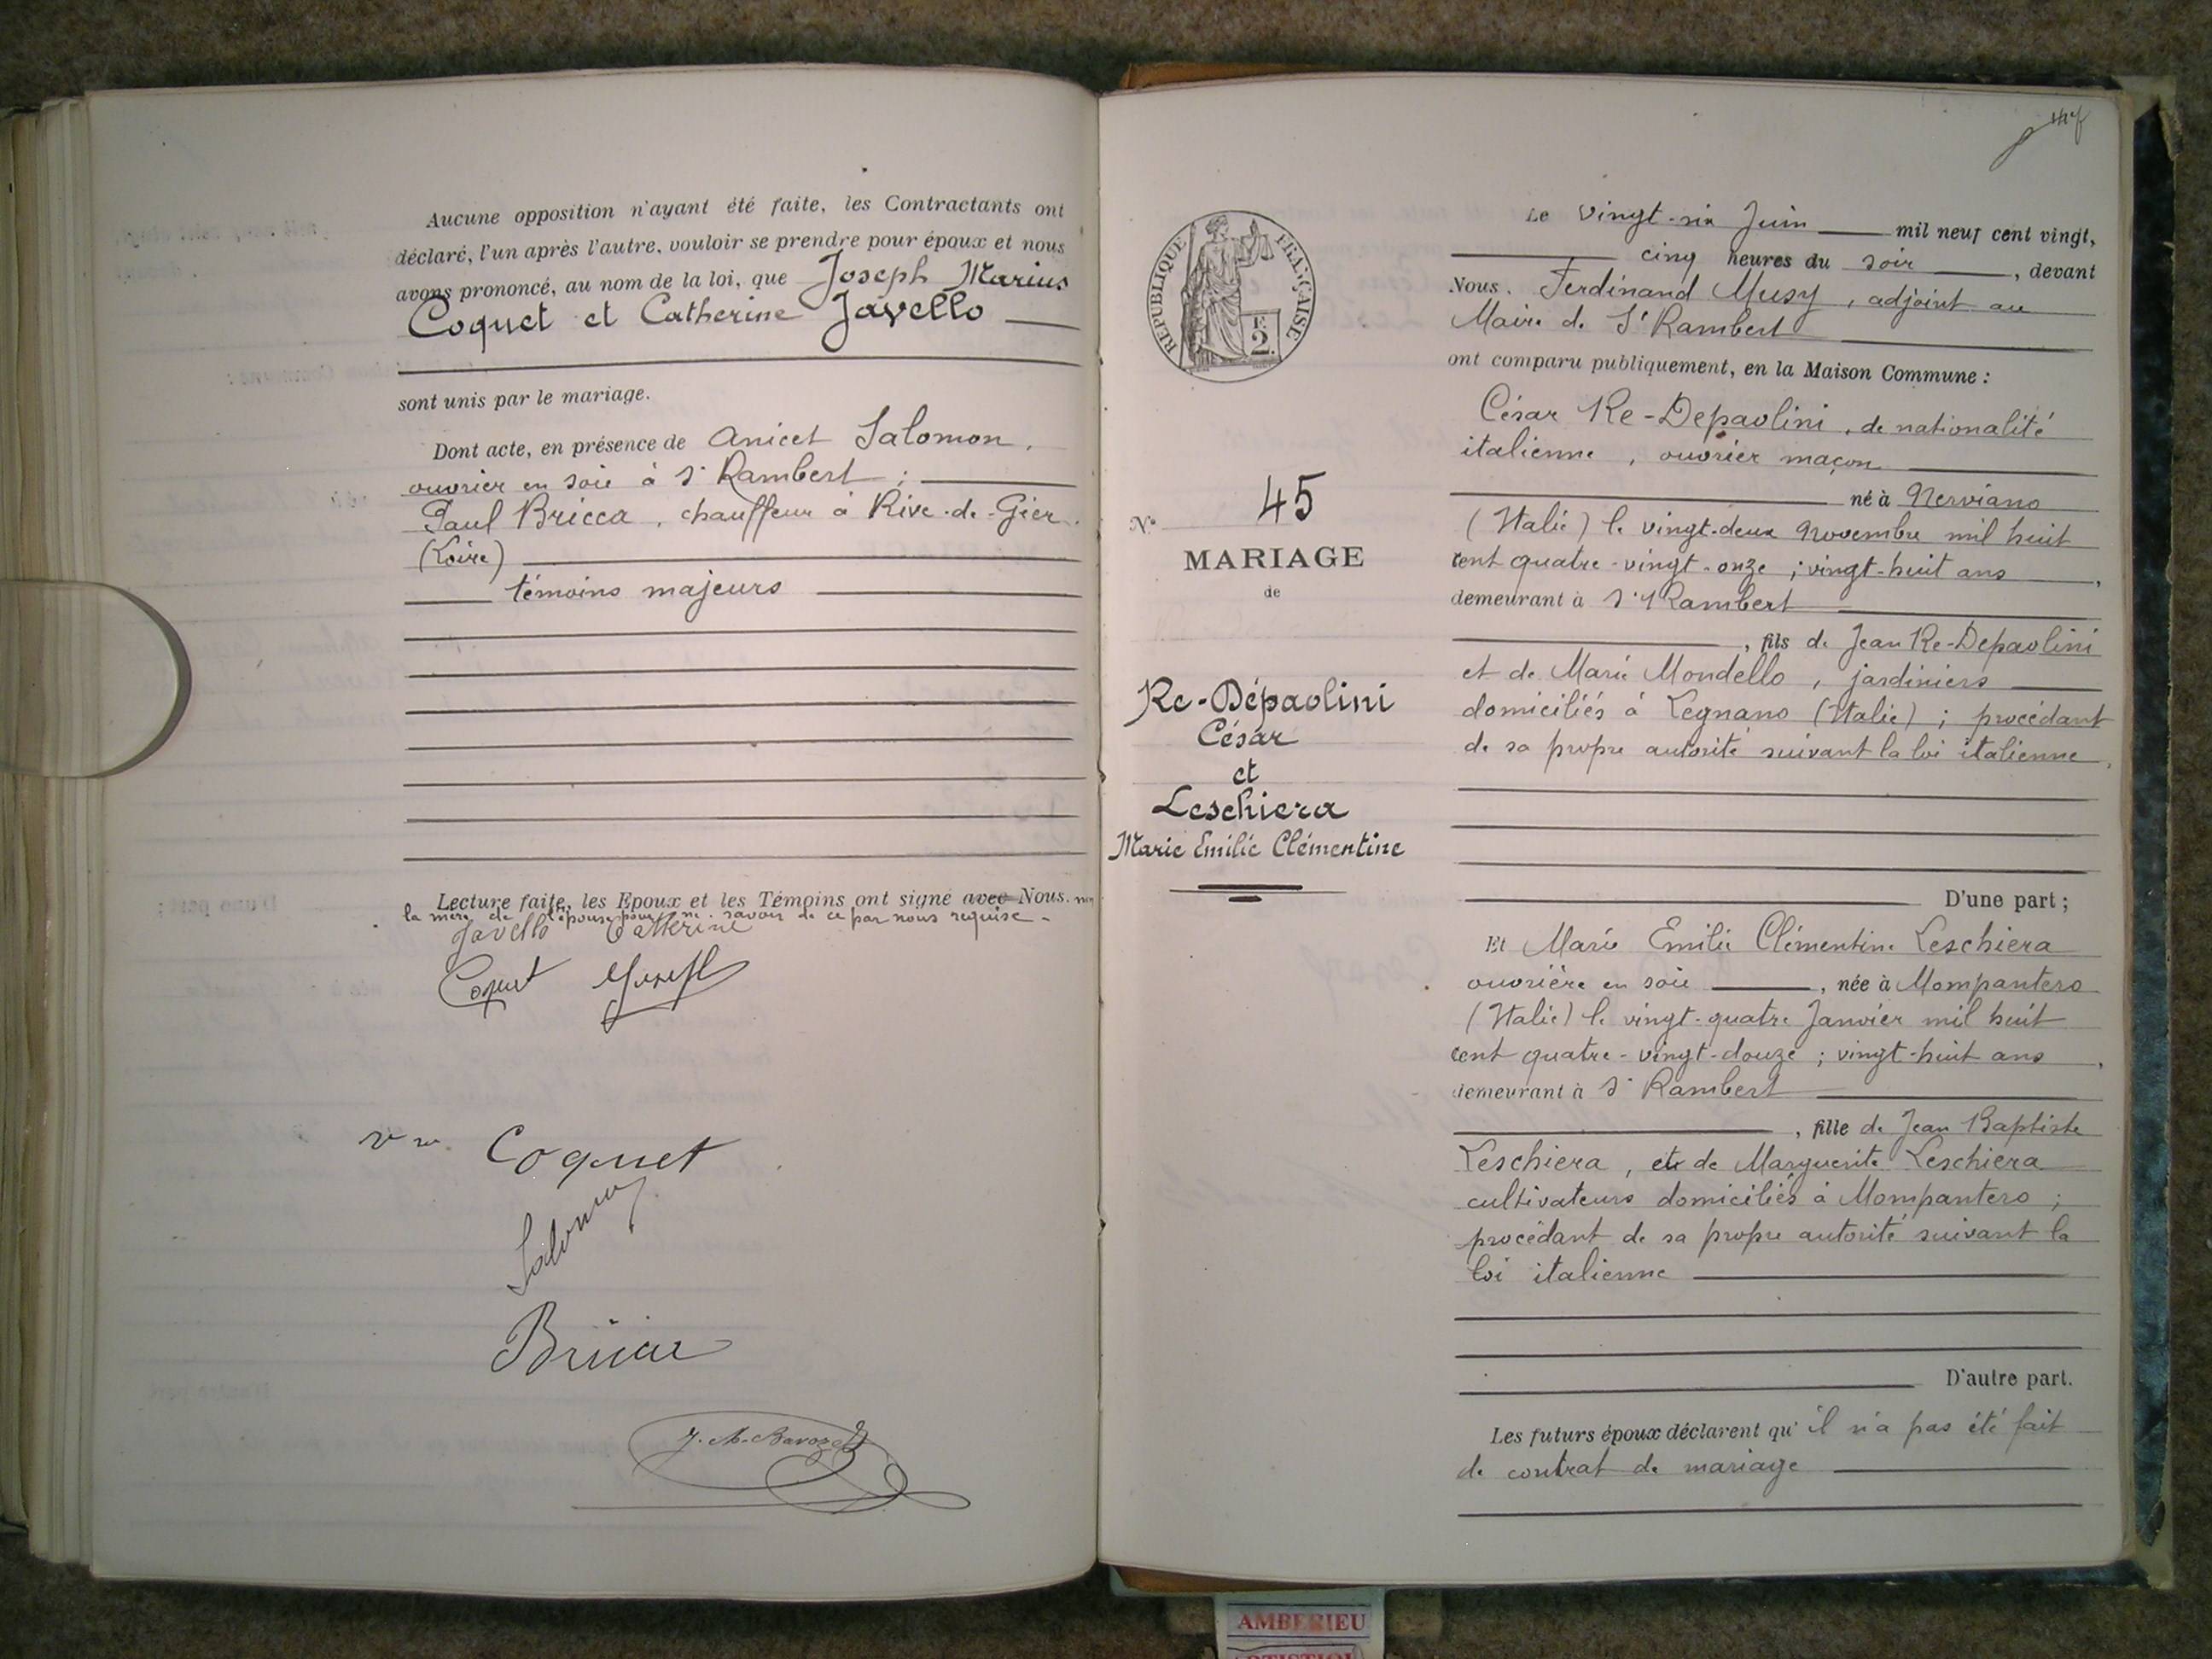 Aucune opposition n'ayant été faite, les Contractants ont
déclaré, l'un après l'autre, vouloir se prendre pour époux et nous
avons prononcé, au nom de la loi, que Joseph Marius
Coquet et Catherine Javello
sont unis par le mariage.
Dont acte, en présence de Anicet Salomon,
ouvrier en soie à St Rambert ;
Paul Bricca, chauffeur à Rive-de-Gier
(Loire)
témoins majeurs
Lecture faite, les Epoux et les Témoins ont signé avec Nous. non
la mère de l'épouse pour ne savoir de ce par nous requise -
Javello Catterine
Coquet Joseph
Coquet
Salomon
J. M. Bavozet
REPUBLIQUE FRANÇAISE
F.
2.
Nº 45
MARIAGE
de
Re-Dépaolini
César
et
Leschiera
Marie Emilie Clémentine
Le vingt-six Juin mil neuf cent vingt,
cinq heures du soir, devant
Nous. Ferdinand Musy, adjoint au
Maire de St Rambert
ont comparu publiquement, en la Maison Commune :
César Re-Depaolini, de nationalité
italienne, ouvrier maçon
né à Nerviano
(Italie) le vingt-deux Novembre mil huit
cent quatre-vingt-onze ; vingt-huit ans,
demeurant à St Rambert
, fils de Jean Re-Depaolini
et de Marie Mondello, jardiniers
domiciliés à Legnano (Italie) ; procédant
de sa propre autorité suivant la loi italienne,
D'une part ;
Et Marie Emilie Clémentine Leschiera
ouvrière en soie, née à Mompantero
(Italie) le vingt-quatre Janvier mil huit
cent quatre-vingt-douze ; vingt-huit ans,
demeurant à St Rambert
, fille de Jean Baptiste
Leschiera, et de Marguerite Leschiera
cultivateurs domiciliés à Mompantero ;
procédant de sa propre autorité suivant la
loi italienne
D'autre part.
Les futurs époux déclarent qu'il n'a pas été fait
de contrat de mariage
AMBERIEU